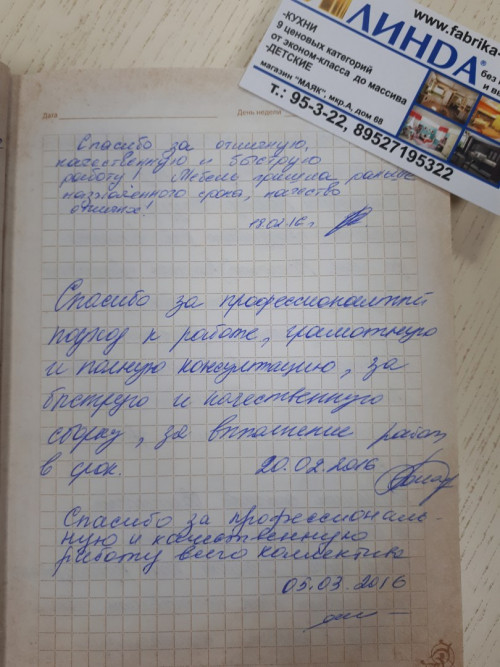 www.fabrika-
-КУХНИ
9 ценовых категорий
от эконом-класса до массива
-ДЕТСКИЕ
магазин "МАЯК", мкр.А, дом 68
т.: 95-3-22, 89527195322
ЛИНДА®
без
и вы
Дата
День недели
Спасибо за отличную,
качественную и быструю
работу! Мебель пришла раньше
назначенного срока, качество
отличн!
18.02.16 г
Спасибо за профессиональный
подход к работе, грамотную
и полную консультацию, за
быструю и качественную
сборку, за выполнение работ
в срок. 20.02.2016
Спасибо за профессиональ-
ную и качественную
работу всего коллектива
05.03.2016